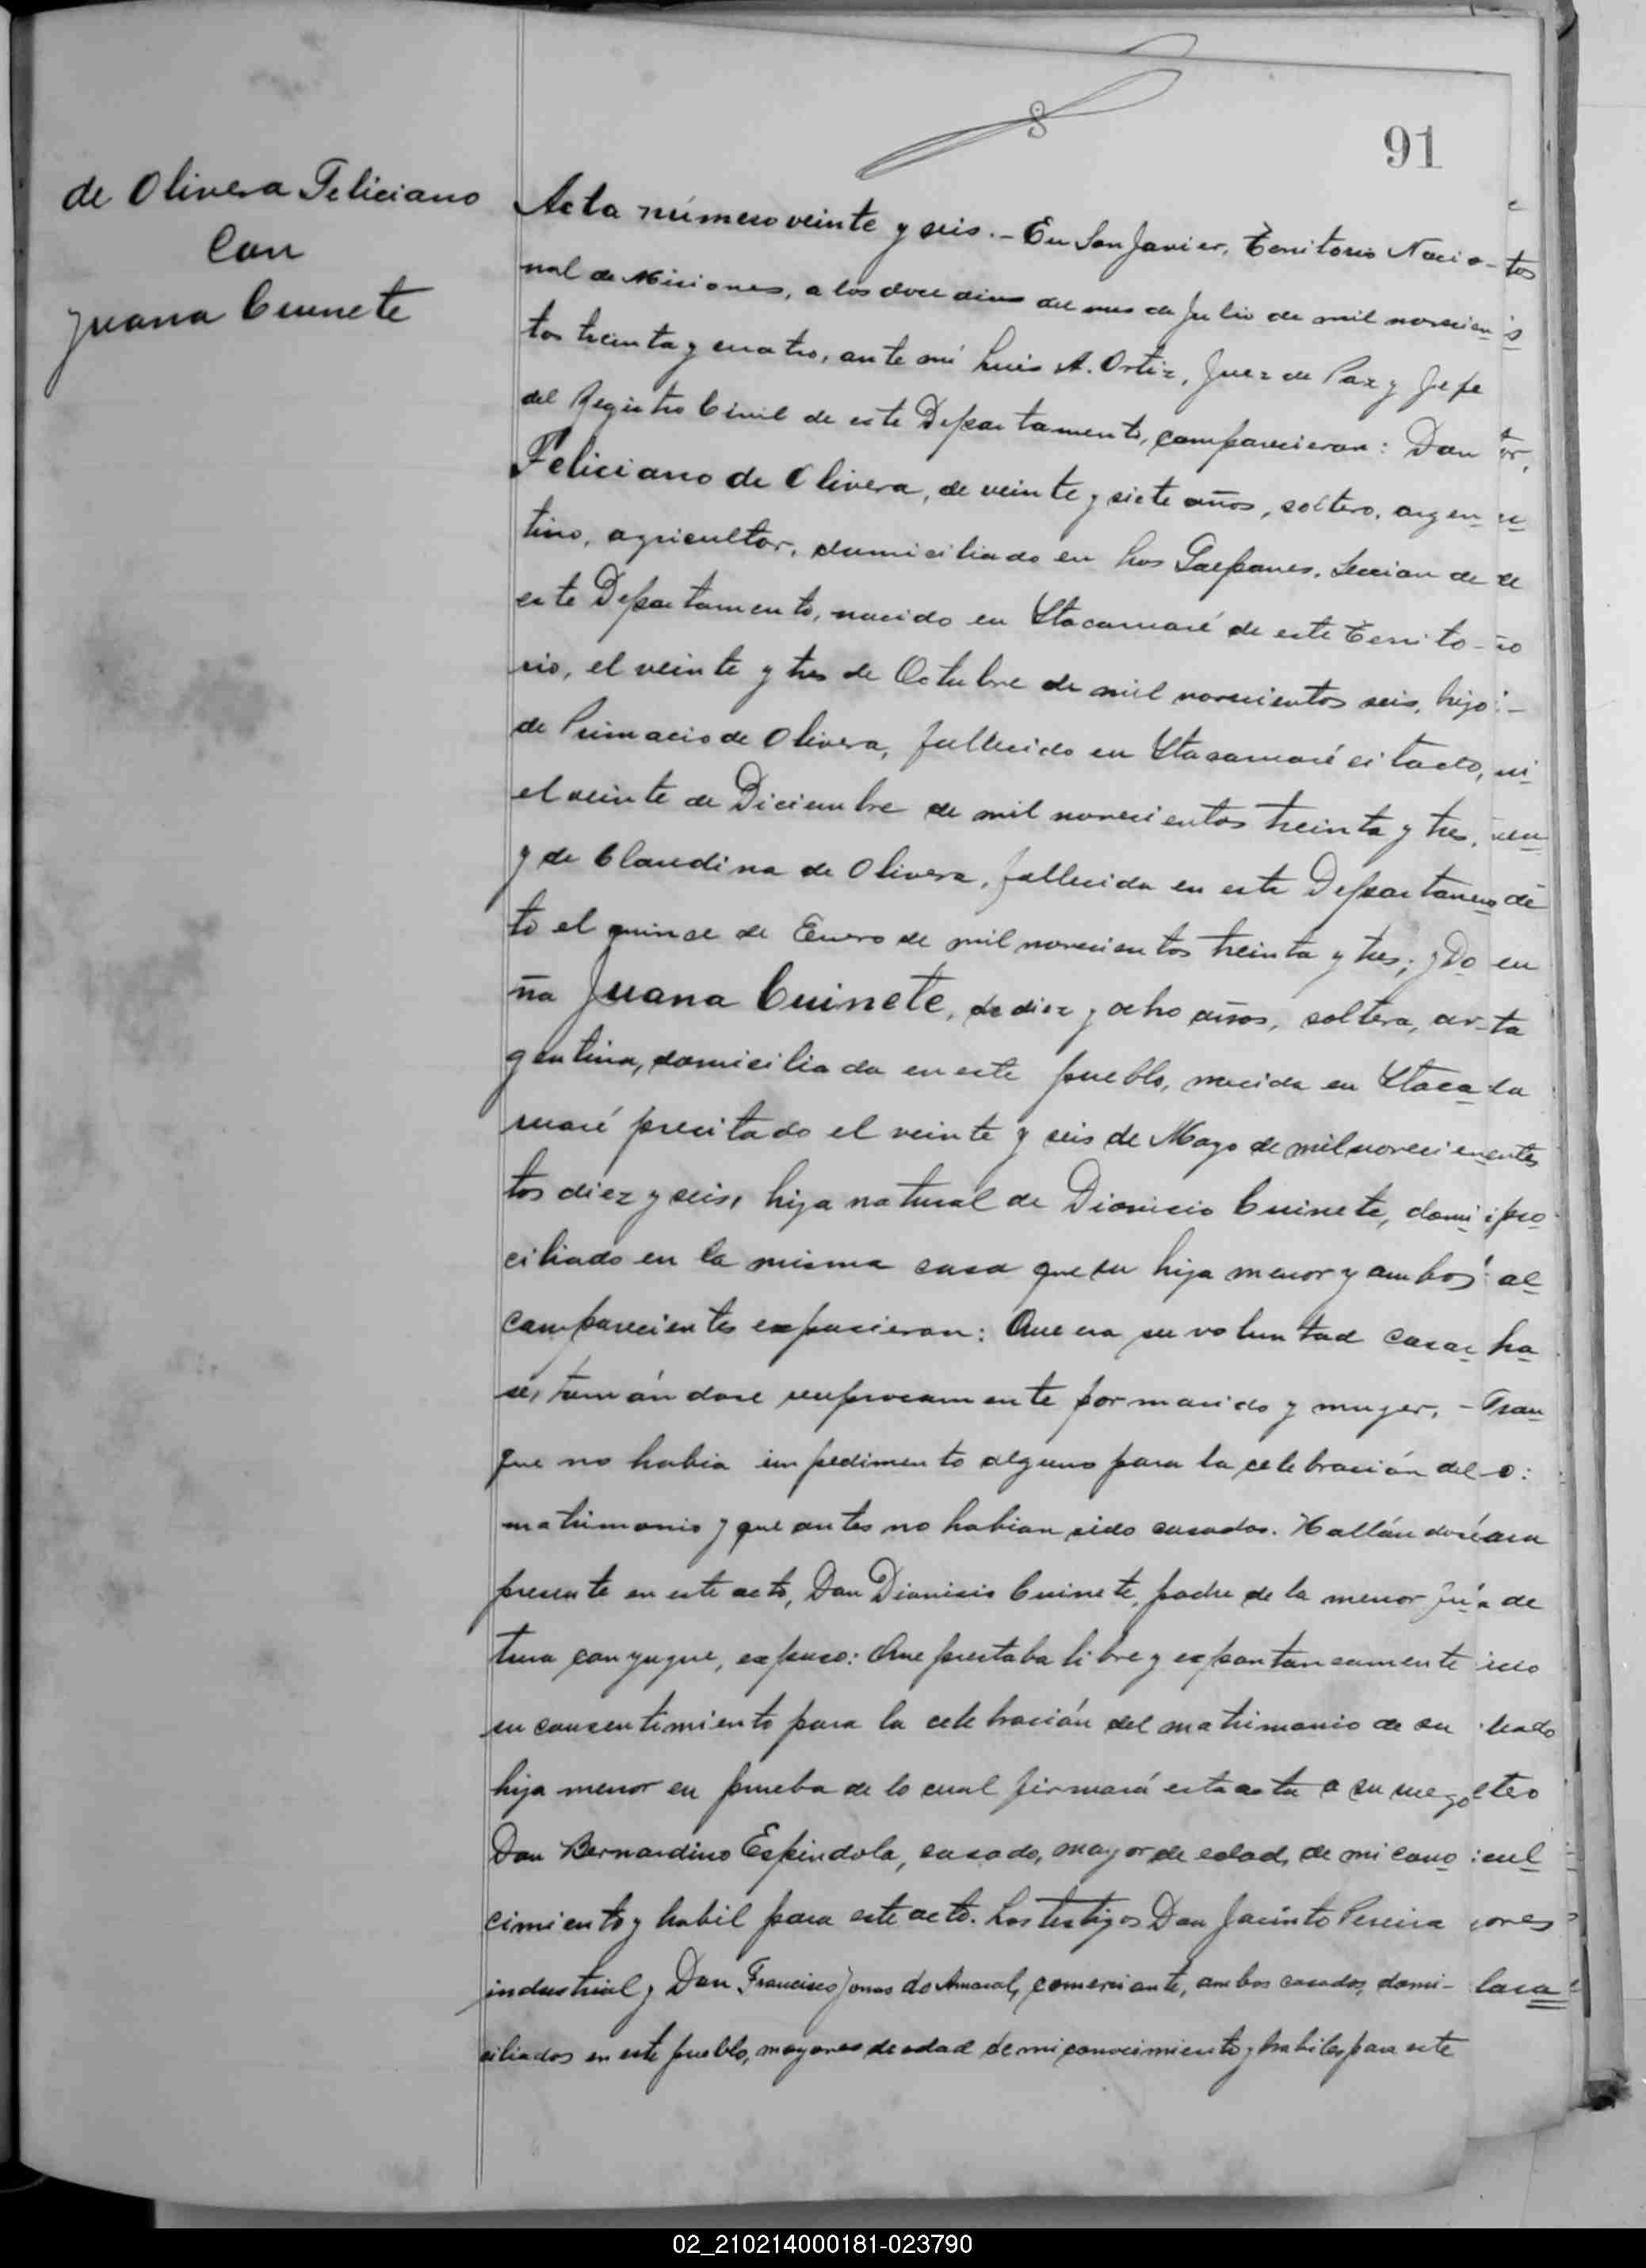 91
de Olivera Feliciano
Con
Juana Cuinete
Acta número veinte y seis.- En San Javier, Territorio Nacio-
nal de Misiones, a los doce dias del mes de Julio de mil novecien
tos treinta y cuatro, ante mi Luis A. Ortiz, Juez de Paz y Jefe
del Registro Civil de este Departamento, comparecieron: Don
Feliciano de Olivera, de veinte y siete años, soltero, argen
tino, agricultor, domiciliado en Los Galpones, Seccion de
este Departamento, nacido en Itacaruaré de este Territo-
rio, el veinte y tres de Octubre de mil novecientos seis, hijo
de Primacio de Olivera, fallecido en Itacaruaré citado,
el veinte de Diciembre de mil novecientos treinta y tres,
y de Claudina de Olivera, fallecida en este Departamen
to el quince de Enero de mil novecientos treinta y tres; y Do
ña Juana Cuinete, de diez y ocho años, soltera, ar-
gentina, domiciliada en este pueblo, nacida en Itaca
ruaré precitado el veinte y seis de Mayo de mil novecien
tos diez y seis, hija natural de Dionicio Cuinete, domi
ciliado en la misma casa que su hija menor y ambos
comparecientes expusieron: Que era su voluntad casar
se, tomándose reciprocamente por marido y mujer, -
que no habia impedimento alguno para la celebración del
matrimonio y que antes no habian sido casados. Hallándose
presente en este acto, Don Dionicio Cuinete, padre de la menor fu
tura conyugue, expuso: Que prestaba libre y espontaneamente
su consentimiento para la celebración del matrimonio de su
hija menor en prueba de lo cual firmará esta acta a su ruego
Don Bernardino Espindola, casado, mayor de edad, de mi cono
cimiento y habil para este acto. Los testigos Don Jacinto Pereira
industrial y Don Francisco Jonas do Amaral, comerciante, ambos casados, domi-
ciliados en este pueblo, mayores de edad de mi conocimiento y habiles para este
02_210214000181-023790